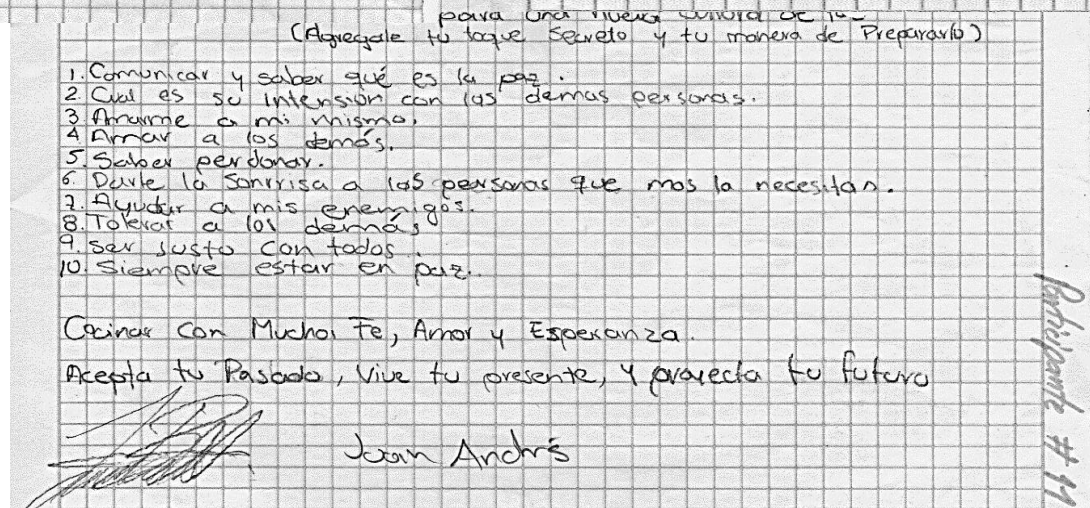 para una nueva cultura de
(Agregale tu toque Secreto y tu manera de Prepararlo)
1. Comunicar y saber qué es la paz.
2. Cual es su intensión con las demas personas.
3 Amarme a mi mismo.
4 Amar a los demás.
5. Saber perdonar.
6. Darle la Sonrrisa a las personas que mas la necesitan.
7. Ayudar a mis enemigos.
8. Tolerar a los demás
9. Ser Justo con todos.
10. Siempre estar en paz..
Cocinar Con Mucha Fe, Amor y Esperanza.
Acepta tu Pasado, Vive tu presente, y proyecta tu futuro
Juan Andrés
Participante # 11